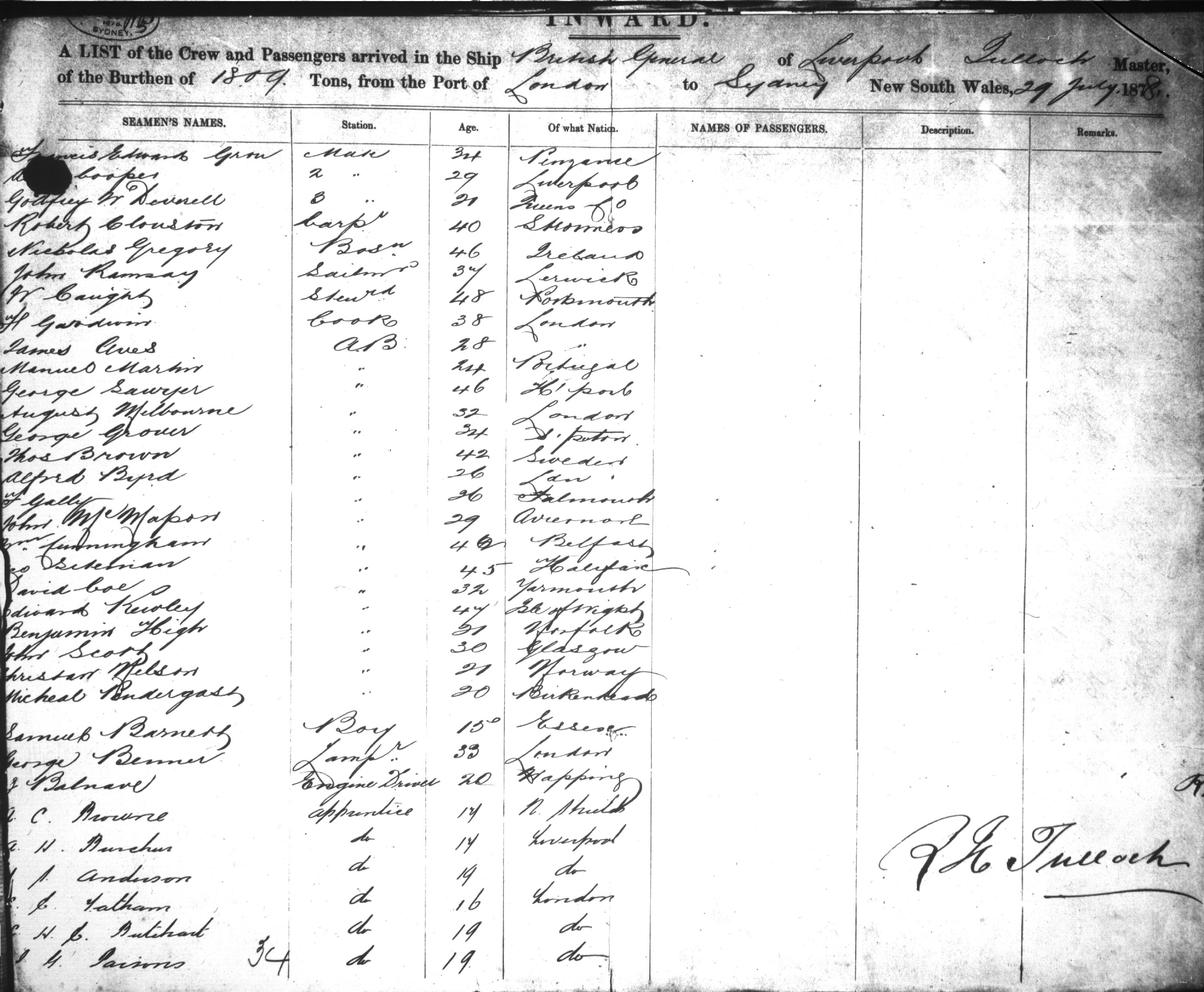 SYDNEY
INWARD.
A LIST of the Crew and Passengers arrived in the Ship British General of Liverpool Tulloch Master,
of the Burthen of 1809. Tons, from the Port of London to Sydney New South Wales, 29 July 1878.
SEAMEN'S NAMES. Station. Age. Of what Nation. NAMES OF PASSENGERS. Description. Remarks.
Francis Edward Mate 34 Penzance
Cooper 2 " 29 Liverpool
Godfrey W Deverell 3 " 21 Queens Co
Robert Clouston Carpr 40 Stromness
Nicholas Gregory Bosn 46 Ireland
John Ramsay Sailmr 37 Lerwick
W Caught Stewrd 48 Portsmouth
H Goodwin Cook 38 London
James Aves AB 28 "
Manuel Martin " 24 Portugal
George Sawyer " 46 H'pool
August Melbourne " 32 London
George Grover " 34 S'pton
Thos Brown " 42 Sweden
Alfred Byrd " 26 Lon
Gally " 26 Falmouth
John McMahon " 29
Cunningham " 42 Belfast
" 45 Halifax
David Coe " 32 Yarmouth
Edward Kewley " 47 Isle of Wight
Benjamin High " 21 Norfolk
John Scott " 30 Glasgow
Christian Nelson " 21 Norway
Micheal Pendergast " 20 Birkenhead
Samuel Barnett Boy 15 Essex
George Benner Lampr 33 London
J Balnave Engine Driver 20 Wapping
C. Browne apprentice 17 N. Shields
H. do 17 Liverpool
Anderson do 19 do
Latham do 16 London
H. C. Butchart do 19 do
G. Parsons 34 do 19 do
R H Tulloch